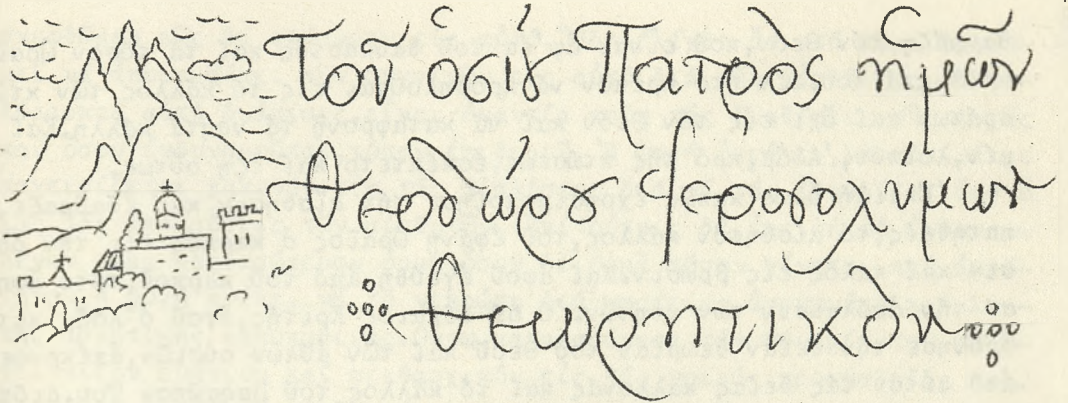 Τοῦ ὁσίου Πατρὸς ἡμῶν
Θεοδώρου Ἱεροσολύμων
Θεωρητικὸν